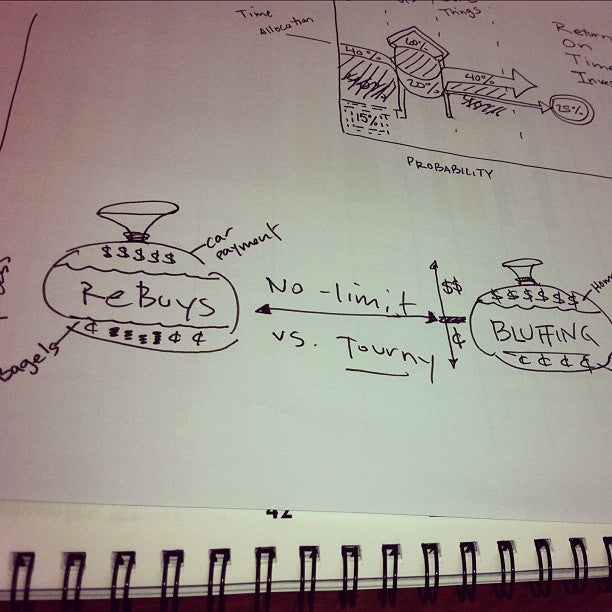 Time
Allocation
Things
Return
On
Time
40%
60%
20%
40%
25%
15%
PROBABILITY
car
payment
$$$$$
ReBuys
¢ ¢ ¢
Bagels
No-limit
vs. Tourny
$$
¢
$$$$$$
BLUFFING
¢ ¢ ¢ ¢
42